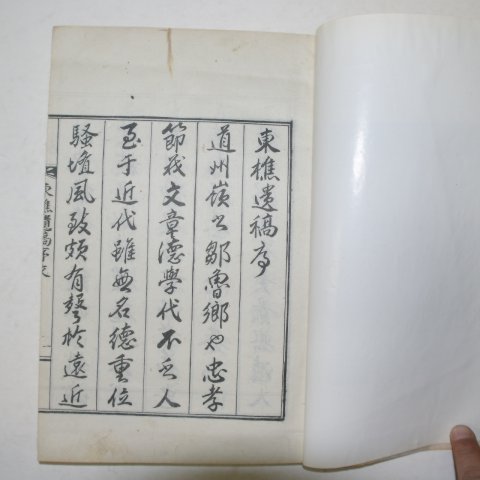 東樵遺稿序
道州嶺之鄒魯鄉也忠孝
節義文章德學代不乏人
至于近代雖無名德重位
騷壇風致頗有聲於遠近
東樵遺稿序文
一